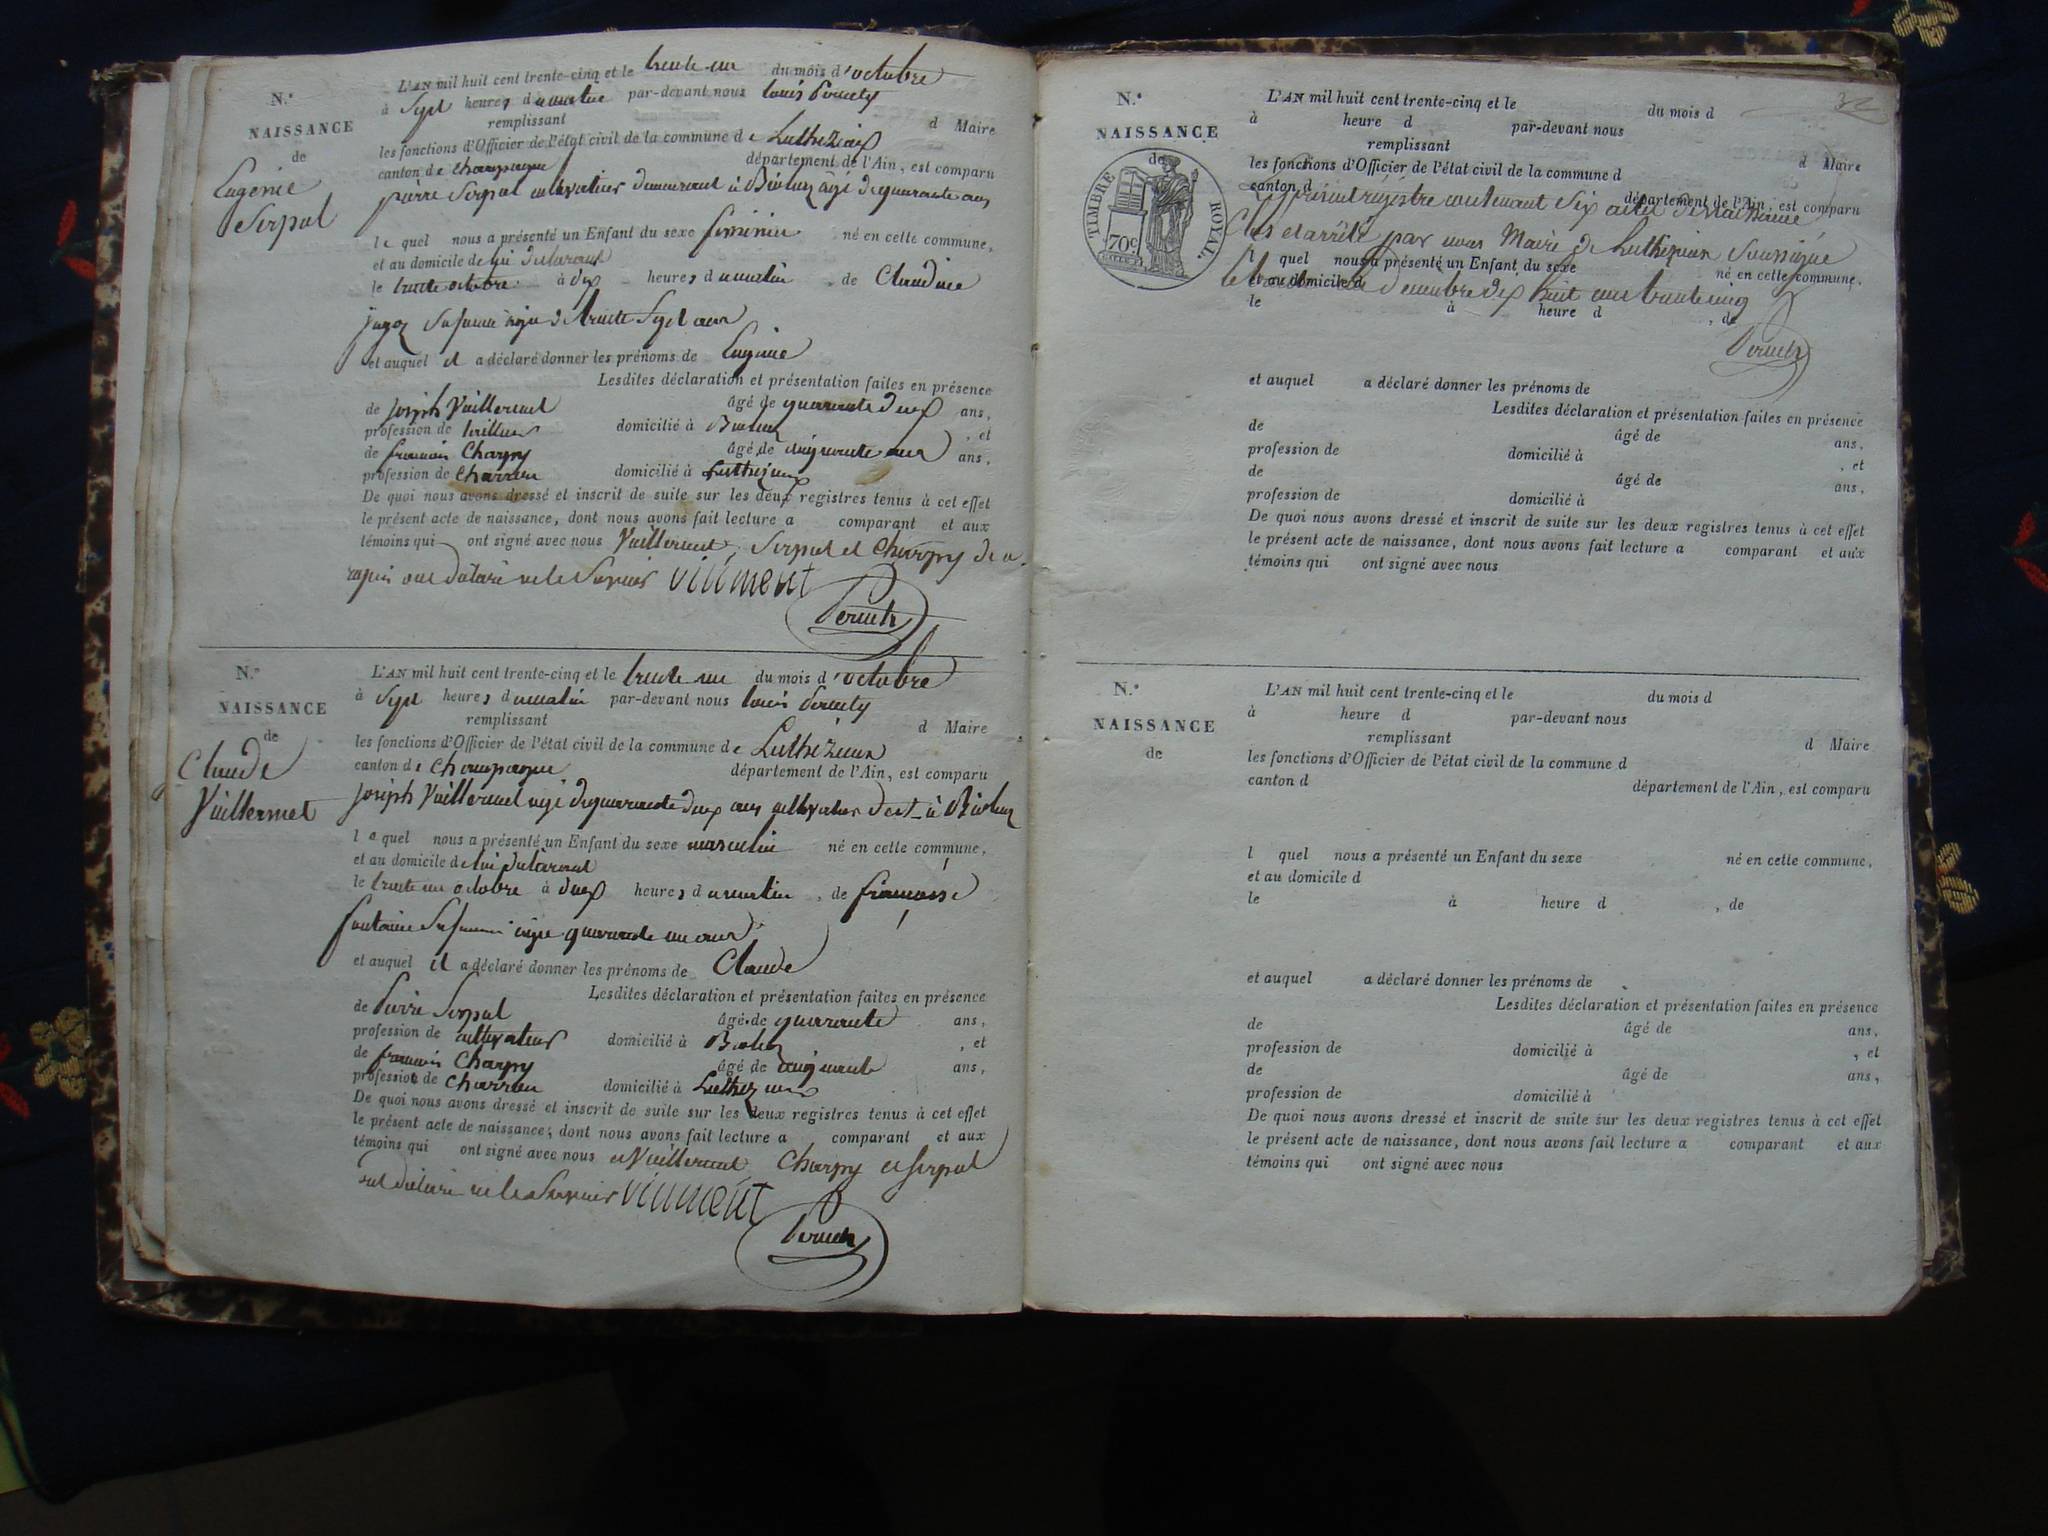 L'AN mil huit cent trente-cinq et le trente un du mois d'octobre
N.°
à Sept heures du matin par-devant nous Louis Peruety
remplissant d Maire
NAISSANCE
les fonctions d'Officier de l'état civil de la commune de Luthezieux
de
canton de Champagne département de l'Ain, est comparu
Eugénie
Serpol
pierre Serpol cultivateur demeurant à Bioleaz âgé de quarante ans
le quel nous a présenté un Enfant du sexe féminin né en cette commune,
et au domicile de lui déclarant
le trente octobre à dix heures du matin, de Claudine
sa femme âgée de trente Sept ans
et auquel il a déclaré donner les prénoms de Eugénie
Lesdites déclaration et présentation faites en présence
de Joseph Vuillermet âgé de quarante deux ans,
profession de tailleur domicilié à , et
de françois Charpy âgé de cinquante ans,
profession de Charron domicilié à Luthezieux
De quoi nous avons dressé et inscrit de suite sur les deux registres tenus à cet effet
le présent acte de naissance, dont nous avons fait lecture a comparant et aux
témoins qui ont signé avec nous Vuillermet, Serpol et Charpy de ce
requis ont déclaré ne le Savoir
N.°
L'AN mil huit cent trente-cinq et le trente un du mois d'octobre
NAISSANCE
à Sept heures du matin par-devant nous Louis Peruety
remplissant d Maire
de
les fonctions d'Officier de l'état civil de la commune de Luthezieux
Claude
canton de Champagne département de l'Ain, est comparu
Vuillermet
Joseph Vuillermet âgé de quarante deux ans cultivateur à
le quel nous a présenté un Enfant du sexe masculin né en cette commune,
et au domicile de lui déclarant
le trente un octobre à deux heures du matin, de françoise
fontaine Sa femme âgée quarante un ans
et auquel il a déclaré donner les prénoms de Claude
Lesdites déclaration et présentation faites en présence
de Pierre Serpol âgé de quarante ans,
profession de cultivateur domicilié à , et
de françois Charpy âgé de cinquante ans,
profession de Charron domicilié à Luthezieux
De quoi nous avons dressé et inscrit de suite sur les deux registres tenus à cet effet
le présent acte de naissance, dont nous avons fait lecture a comparant et aux
témoins qui ont signé avec nous et Vuillermet Charpy et Serpol
ont déclaré ne le Savoir
32
N.°
L'AN mil huit cent trente-cinq et le du mois d
NAISSANCE
à heure d par-devant nous
remplissant d Maire
de
les fonctions d'Officier de l'état civil de la commune d
TIMBRE ROYAL.
70c
canton d département de l'Ain, est comparu
Le présent régistre contenant Six actes de Naissance
Clos et arrêté par nous Maire de Luthezieux Soussigné
l quel nous a présenté un Enfant du sexe né en cette commune,
et au domicile d
le décembre dix huit cent trente cinq
le à heure d , de
et auquel a déclaré donner les prénoms de
Lesdites déclaration et présentation faites en présence
de âgé de ans,
profession de domicilié à , et
de âgé de ans,
profession de domicilié à
De quoi nous avons dressé et inscrit de suite sur les deux registres tenus à cet effet
le présent acte de naissance, dont nous avons fait lecture a comparant et aux
témoins qui ont signé avec nous
N.°
L'AN mil huit cent trente-cinq et le du mois d
NAISSANCE
à heure d par-devant nous
remplissant d Maire
de
les fonctions d'Officier de l'état civil de la commune d
canton d département de l'Ain, est comparu
l quel nous a présenté un Enfant du sexe né en cette commune,
et au domicile d
le à heure d , de
et auquel a déclaré donner les prénoms de
Lesdites déclaration et présentation faites en présence
de âgé de ans,
profession de domicilié à , et
de âgé de ans,
profession de domicilié à
De quoi nous avons dressé et inscrit de suite sur les deux registres tenus à cet effet
le présent acte de naissance, dont nous avons fait lecture a comparant et aux
témoins qui ont signé avec nous